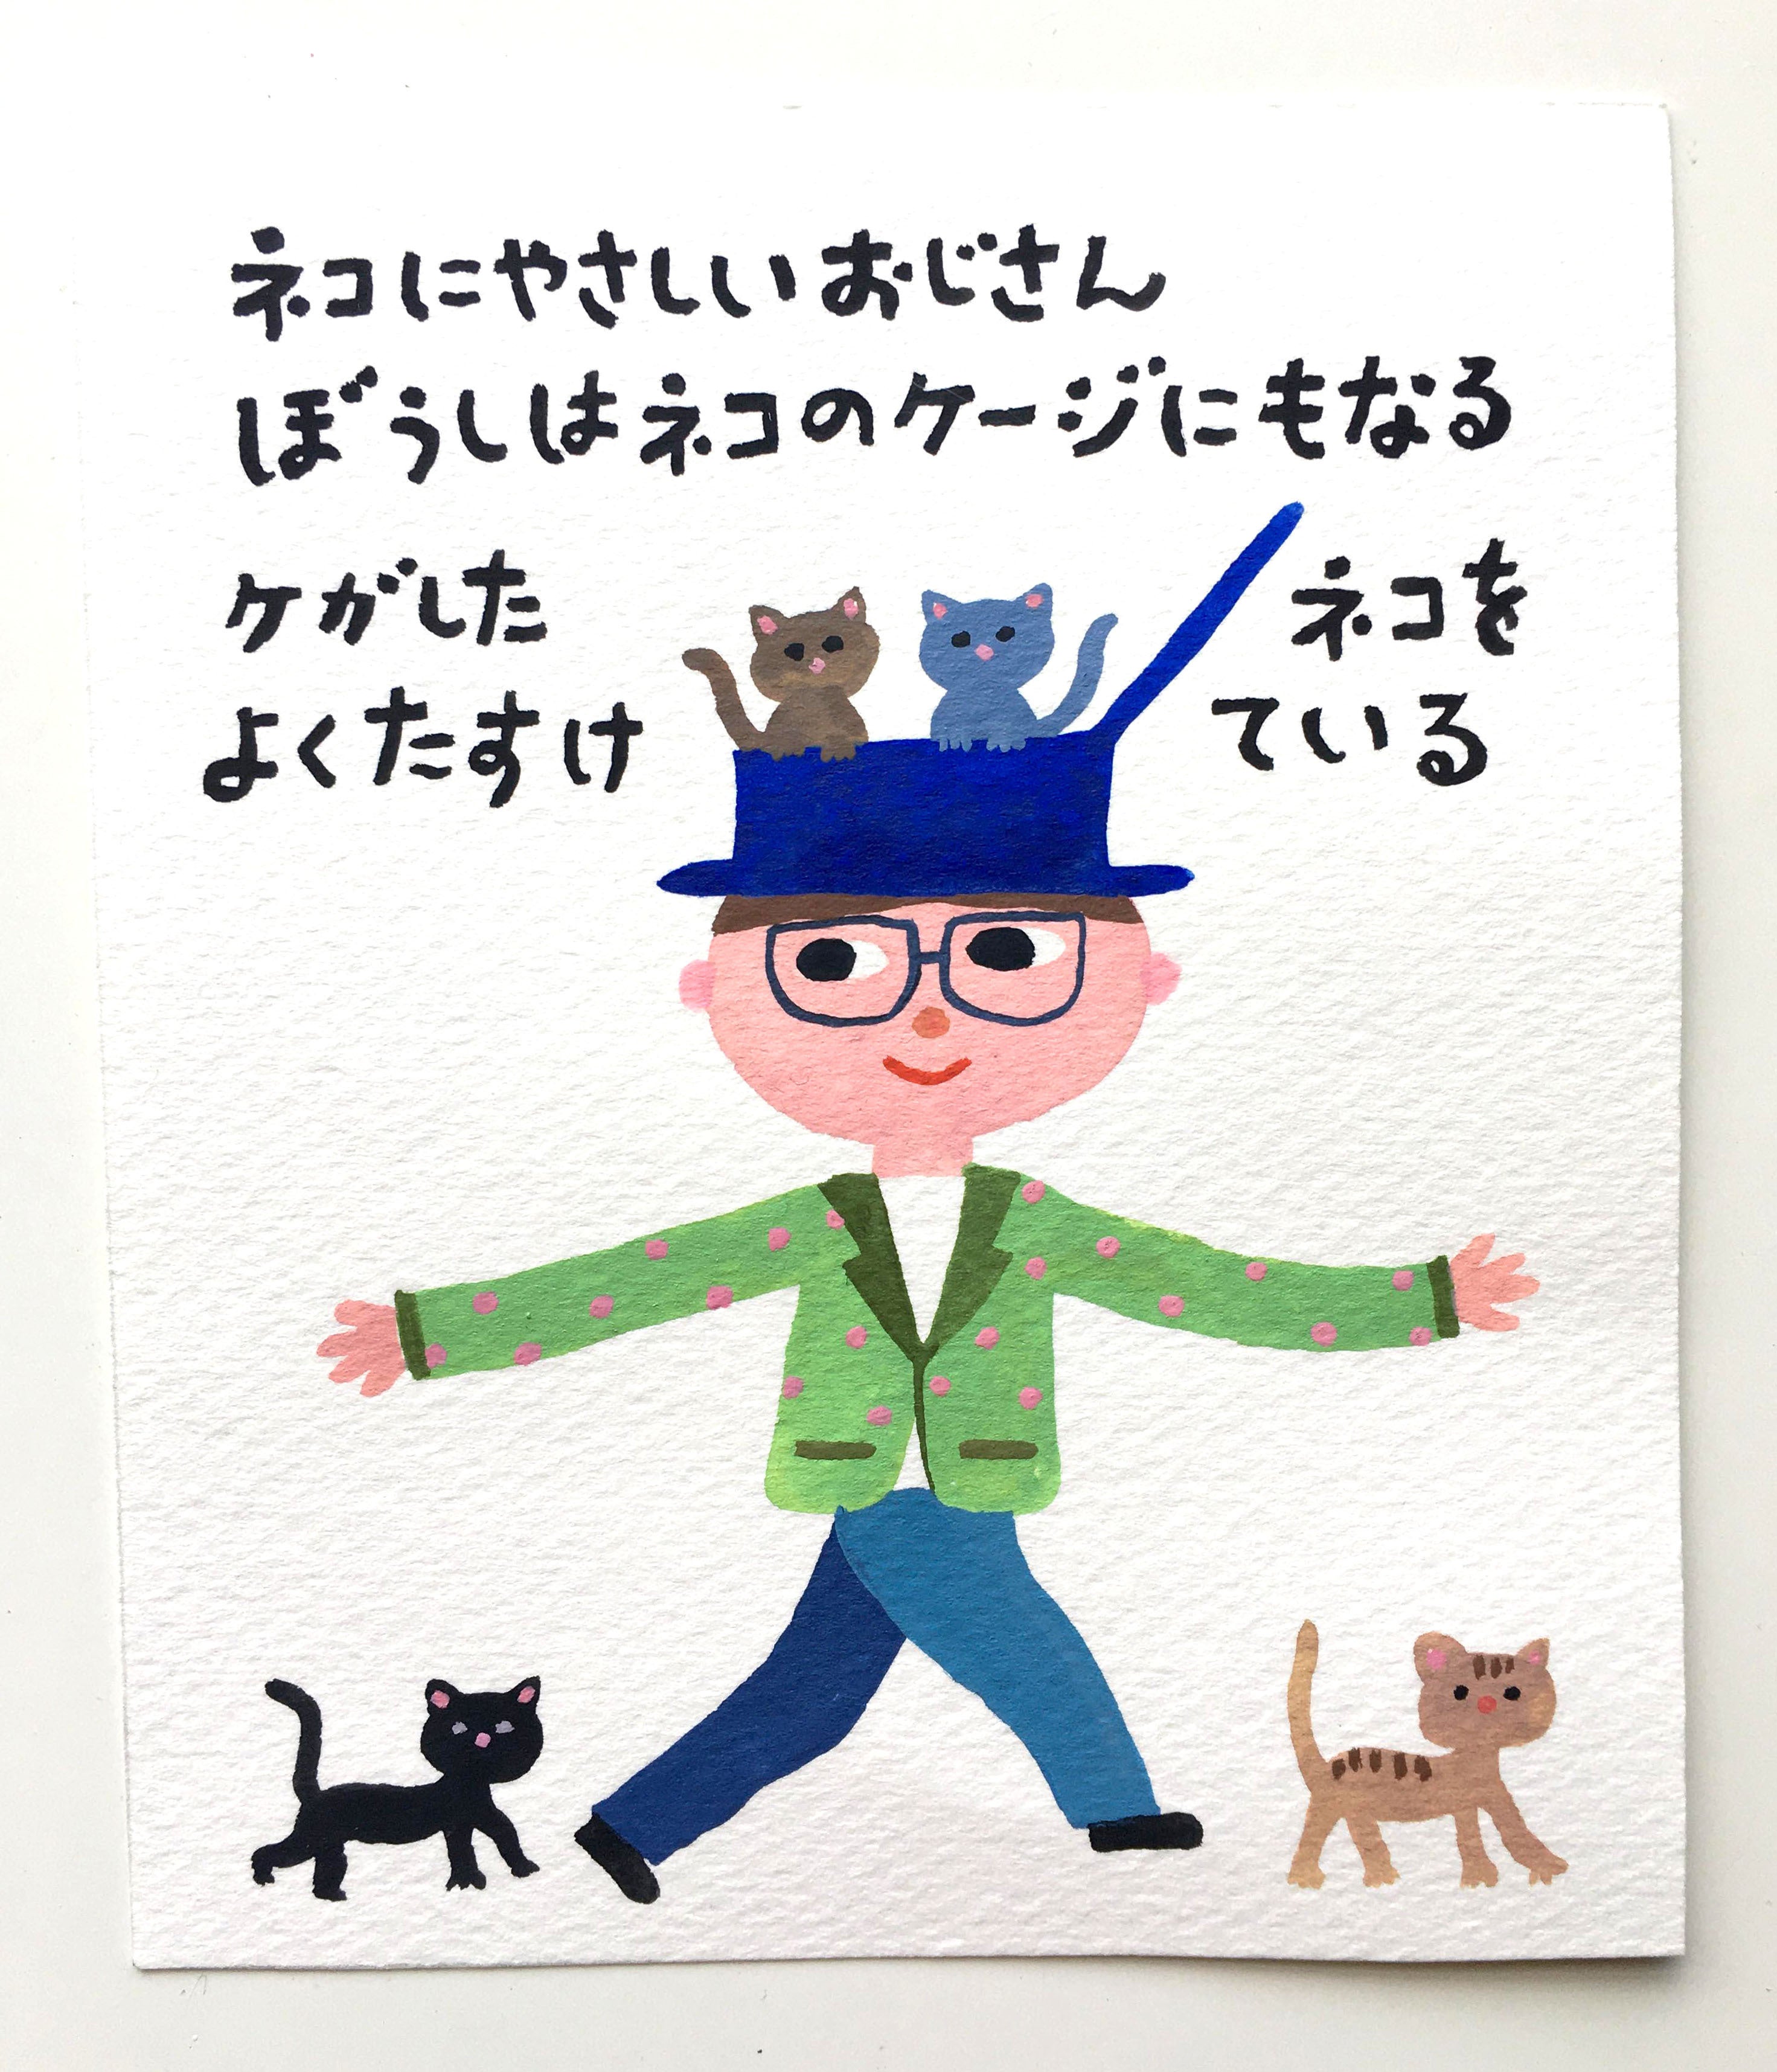 ネコにやさしいおじさん
ぼうしはネコのケージにもなる
ケガした ネコを
よくたすけ ている